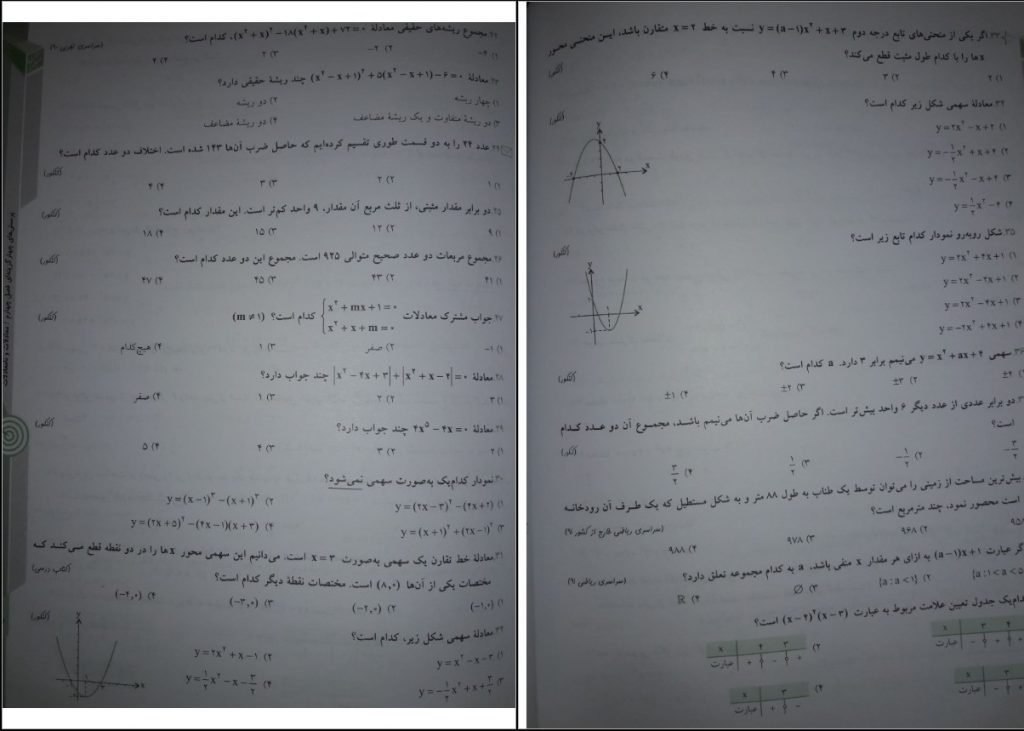 ۲۲. مجموع ریشه‌های حقیقی معادلهٔ (x²+x)²−۱۸(x²+x)+۷۲=۰، کدام است؟ (سراسری تجربی ۹۰)
۱) ۴− ۲) ۲− ۳) ۲ ۴) ۴
۲۳. معادلهٔ (x²−x+۱)²+۵(x²−x+۱)−۶=۰ چند ریشهٔ حقیقی دارد؟
۱) چهار ریشه ۲) دو ریشه
۳) دو ریشهٔ متفاوت و یک ریشهٔ مضاعف ۴) دو ریشهٔ مضاعف
۲۴. عدد ۲۴ را به دو قسمت طوری تقسیم کرده‌ایم که حاصل ضرب آن‌ها ۱۴۳ شده است. اختلاف دو عدد کدام است؟
(کنکور)
۱) ۱ ۲) ۲ ۳) ۳ ۴) ۴
۲۵. دو برابر مقدار مثبتی، از ثلث مربع آن مقدار، ۹ واحد کم‌تر است. این مقدار کدام است؟ (کنکور)
۱) ۹ ۲) ۱۲ ۳) ۱۵ ۴) ۱۸
۲۶. مجموع مربعات دو عدد صحیح متوالی ۹۲۵ است. مجموع این دو عدد کدام است؟ (کنکور)
۱) ۴۱ ۲) ۴۳ ۳) ۴۵ ۴) ۴۷
۲۷. جواب مشترک معادلات { x²+mx+۱=۰ , x²+x+m=۰ کدام است؟ (m≠۱) (کنکور)
۱) ۱− ۲) صفر ۳) ۱ ۴) هیچ‌کدام
۲۸. معادلهٔ |x²−۴x+۳|+|x²+x−۲|=۰ چند جواب دارد؟ (کنکور)
۱) ۳ ۲) ۲ ۳) ۱ ۴) صفر
۲۹. معادلهٔ ۴x⁵−۴x=۰ چند جواب دارد؟ (کنکور)
۱) ۲ ۲) ۳ ۳) ۴ ۴) ۵
۳۰. نمودار کدام‌یک به‌صورت سهمی نمی‌شود؟
۱) y=(۲x−۳)²−(۲x+۲) ۲) y=(x−۱)³−(x+۱)³
۳) y=(x+۱)²+(۲x−۱)² ۴) y=(۲x+۵)²−(۴x−۱)(x+۳)
۳۱. معادلهٔ خط تقارن یک سهمی به‌صورت x=۳ است. می‌دانیم این سهمی محور xها را در دو نقطه قطع می‌کند که
مختصات یکی از آن‌ها (۸,۰) است. مختصات نقطهٔ دیگر کدام است؟ (کتاب درسی)
۱) (−۱,۰) ۲) (−۲,۰) ۳) (−۳,۰) ۴) (−۴,۰)
۳۲. معادلهٔ سهمی شکل زیر، کدام است؟ (کنکور)
۱) y=x²−x−۳ ۲) y=۲x²+x−۱
۳) y=−۱/۲x²+x+۳/۲ ۴) y=۱/۲x²−x−۳/۲
x
پرسش‌های چهارگزینه‌ای فصل چهارم: معادلات و نامعادلات
۳۳. اگر یکی از منحنی‌های تابع درجه دوم y=(a−۱)x²+x+۳ نسبت به خط x=۲ متقارن باشد، این منحنی محور
xها را با کدام طول مثبت قطع می‌کند؟ (کنکور)
۱) ۲ ۲) ۳ ۳) ۴ ۴) ۶
۳۴. معادلهٔ سهمی شکل زیر کدام است؟ (کنکور)
۱) y=۲x²−x+۲
۲) y=−۱/۲x²+x+۴
۳) y=−۱/۲x²−x+۴
۴) y=۱/۲x²−۴
y
x
۳۵. شکل روبه‌رو نمودار کدام تابع زیر است؟ (کنکور)
۱) y=۲x²+۴x+۱
۲) y=۲x²−۲x+۱
۳) y=۲x²−۴x+۱
۴) y=−۲x²+۴x+۱
y
x
۱
−۱
۳۶. سهمی y=x²+ax+۴ می‌نیمم برابر ۳ دارد. a کدام است؟ (کنکور)
±۴ ۲) ±۳ ۳) ±۲ ۴) ±۱
دو برابر عددی از عدد دیگر ۶ واحد بیش‌تر است. اگر حاصل ضرب آن‌ها می‌نیمم باشد، مجموع آن دو عدد کدام
است؟ (کنکور)
−۳/۲ ۲) −۱/۲ ۳) ۱/۲ ۴) ۳/۲
بیش‌ترین مساحت از زمینی را می‌توان توسط یک طناب به طول ۸۸ متر و به شکل مستطیل که یک طرف آن رودخانه
است محصور نمود، چند مترمربع است؟ (سراسری ریاضی خارج از کشور ۹۱)
۲) ۹۶۸ ۳) ۹۷۸ ۴) ۹۸۸
گر عبارت (a−۱)x+۱ به ازای هر مقدار x منفی باشد، a به کدام مجموعه تعلق دارد؟ (سراسری ریاضی ۹۱)
{a:۱<a<۵ ۲) {a:a<۱} ۳) ∅ ۴) ℝ
دام‌یک جدول تعیین علامت مربوط به عبارت (x−۴)²(x−۳) است؟
x ۳ ۴
عبارت − ۰ + ۰ +
۲) x ۴ ۳
عبارت + ۰ − ۰ +
x ۳
عبارت − ۰ +
۴) x ۳
عبارت + ۰ −